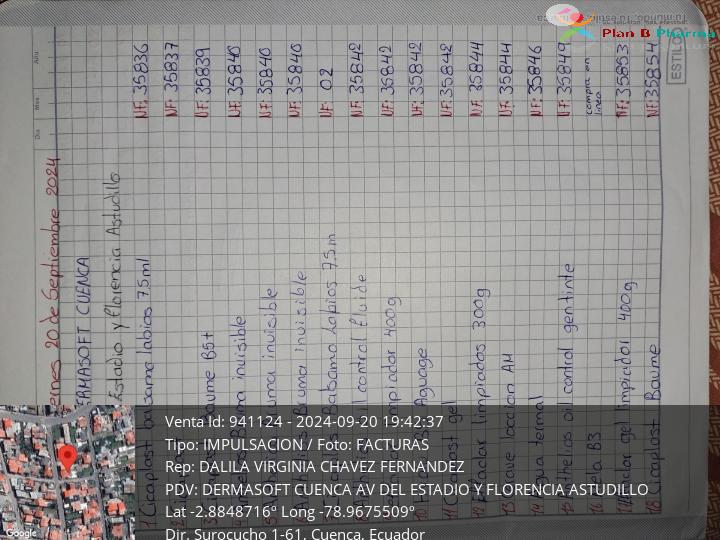 Plan B Pharma
ESTILO
Año
Mes
Día
20 de Septiembre 2024
CUENCA
Estadio y florencia Astudillo
1 Cicaplast balsamo labios 7.5ml NF: 35836
NF: 35837
3 Baume B5+ NF: 35839
4 invisible NF: 35840
invisible NF: 35840
Bruma invisible NF: 35840
Labios 7.5m NF: 02
oil control fluide NF: 35842
limpiador 400g NF: 35842
Aguage NF: 35842
11 Cicaplast gel NF: 35842
limpiados 300g NF: 35844
13 loccion AH NF: 35844
14 termal NF: 35846
15 oil control gentinte NF: 35849
16 B3 compra en linea
17 gel limpiador 400g NF: 35853
18 Cicaplast Baume NF: 35854
Google
Venta Id: 941124 - 2024-09-20 19:42:37
Tipo: IMPULSACION / Foto: FACTURAS
Rep: DALILA VIRGINIA CHAVEZ FERNANDEZ
PDV: DERMASOFT CUENCA AV DEL ESTADIO Y FLORENCIA ASTUDILLO
Lat -2.8848716° Long -78.9675509°
Dir. Surocucho 1-61, Cuenca, Ecuador